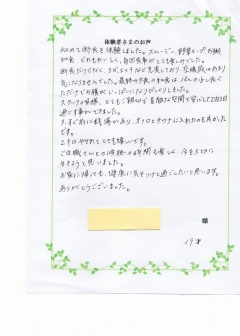 体験者さまのお声
初めて断食を体験しました。スムージー、野菜スープ、お粥、
どれもおいしく、毎回食事がとても楽しみでした。
断食だけでなく、ヨガ、エステなど充実しており、空腹感はあまり
気になりませんでした。最終日の夜の和食は、ほんの少し食べ
ただけでお腹がいっぱいになりびっくりしました。
スタッフの皆様、とてもご親切で素敵な空間で安心して2泊3日
過ごす事ができました。
すぐ前に銭湯があり、サウナに入れたのも良かった
です。
2キロやせれてとても嬉しいです。
今を大切に
生きようと思いました。
お家に帰っても、健康に気をつけて過ごしたいと思います。
ありがとうございました。
様
19才